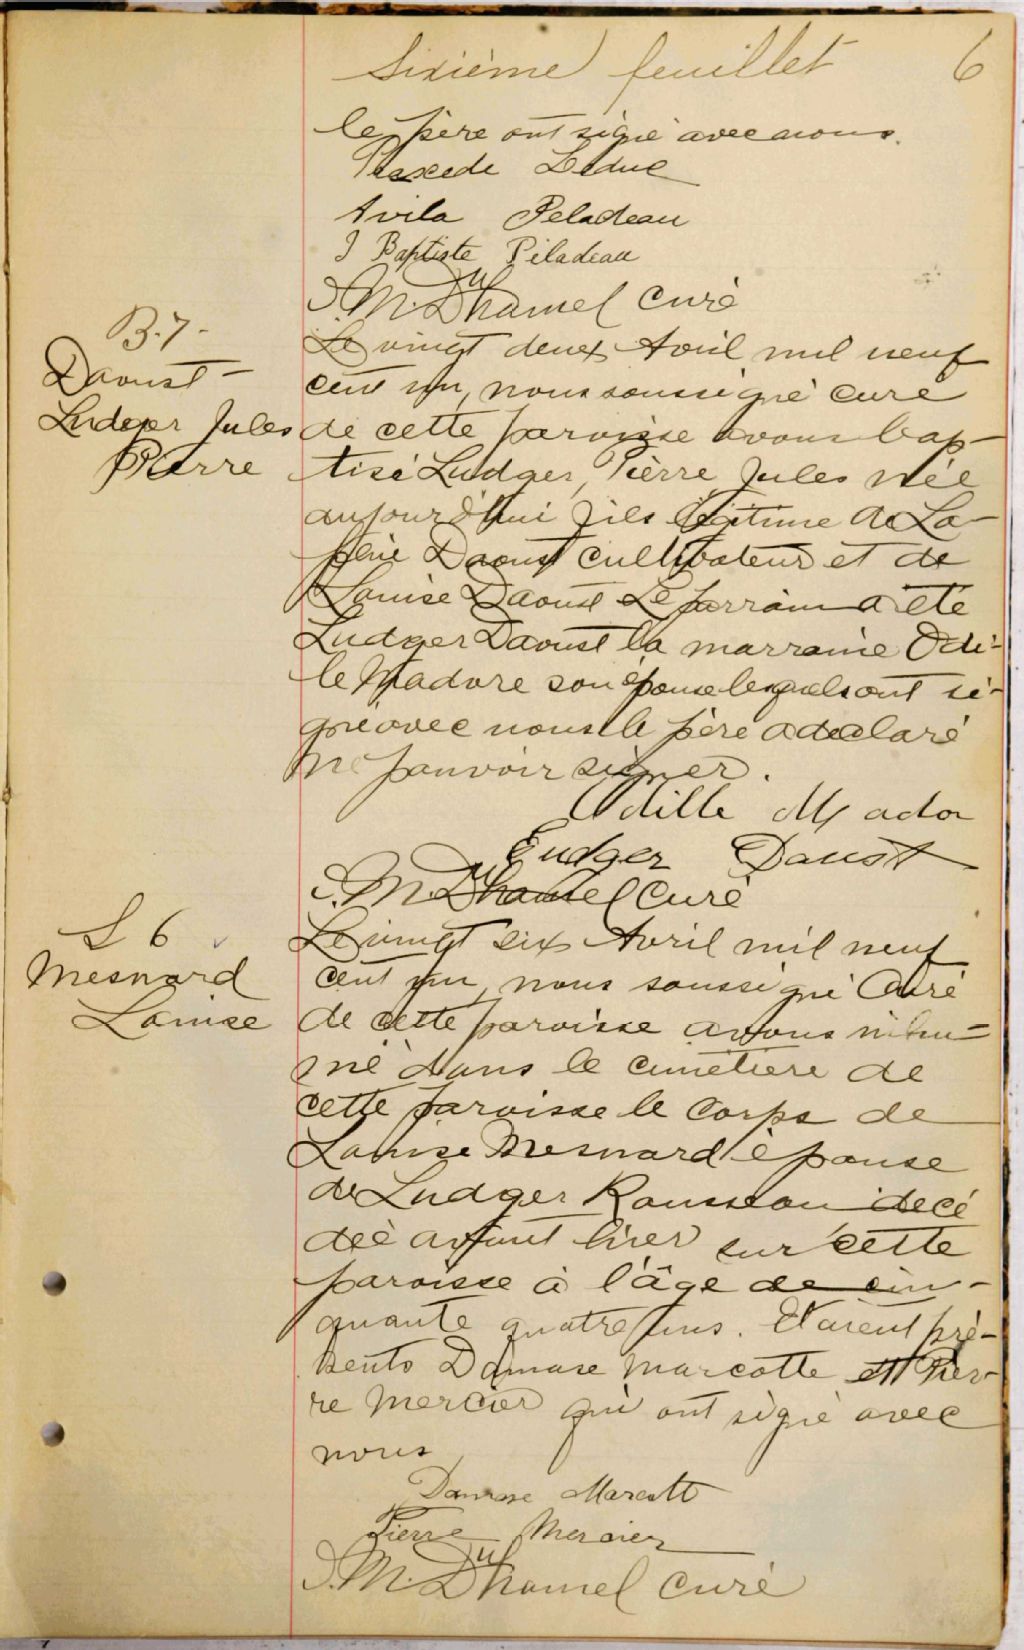 Sixième feuillet 6
le père ont signé avec nous.
Praxede Leduc
Avila Peladeau
J Baptiste Péladeau
J. M. Duhamel Curé
B. 7 -
Daoust -
Ludger Jules
Pierre
Le vingt deux Avril mil neuf
cent un, nous soussigné curé
de cette paroisse avons bap-
tisé Ludger, Pierre Jules née
aujourd'hui fils légitime de
Daoust cultivateur et de
Louise Daoust Le parrain a été
Ludger Daoust la marraine Odi-
le Madore son épouse lesquels ont si-
gné avec nous le père a declaré
ne pouvoir signer.
Odille Mador
Ludger Daust
J. M. Duhamel Curé
S 6
Mesnard
Louise
Le vingt six Avril mil neuf
cent un, nous soussigné Curé
de cette paroisse avons inhu=
mé dans le cimetière de
cette paroisse le corps de
Louise Mesnard épouse
de Ludger Rousseau decé
deé avant hier sur cette
paroisse à l'âge de cin-
quante quatre ans. Etaient pré-
sents Damase Marcotte et Pier-
re Mercier qui ont signé avec
nous
Damase Marcott
Pierre Mercier
J. M. Duhamel curé